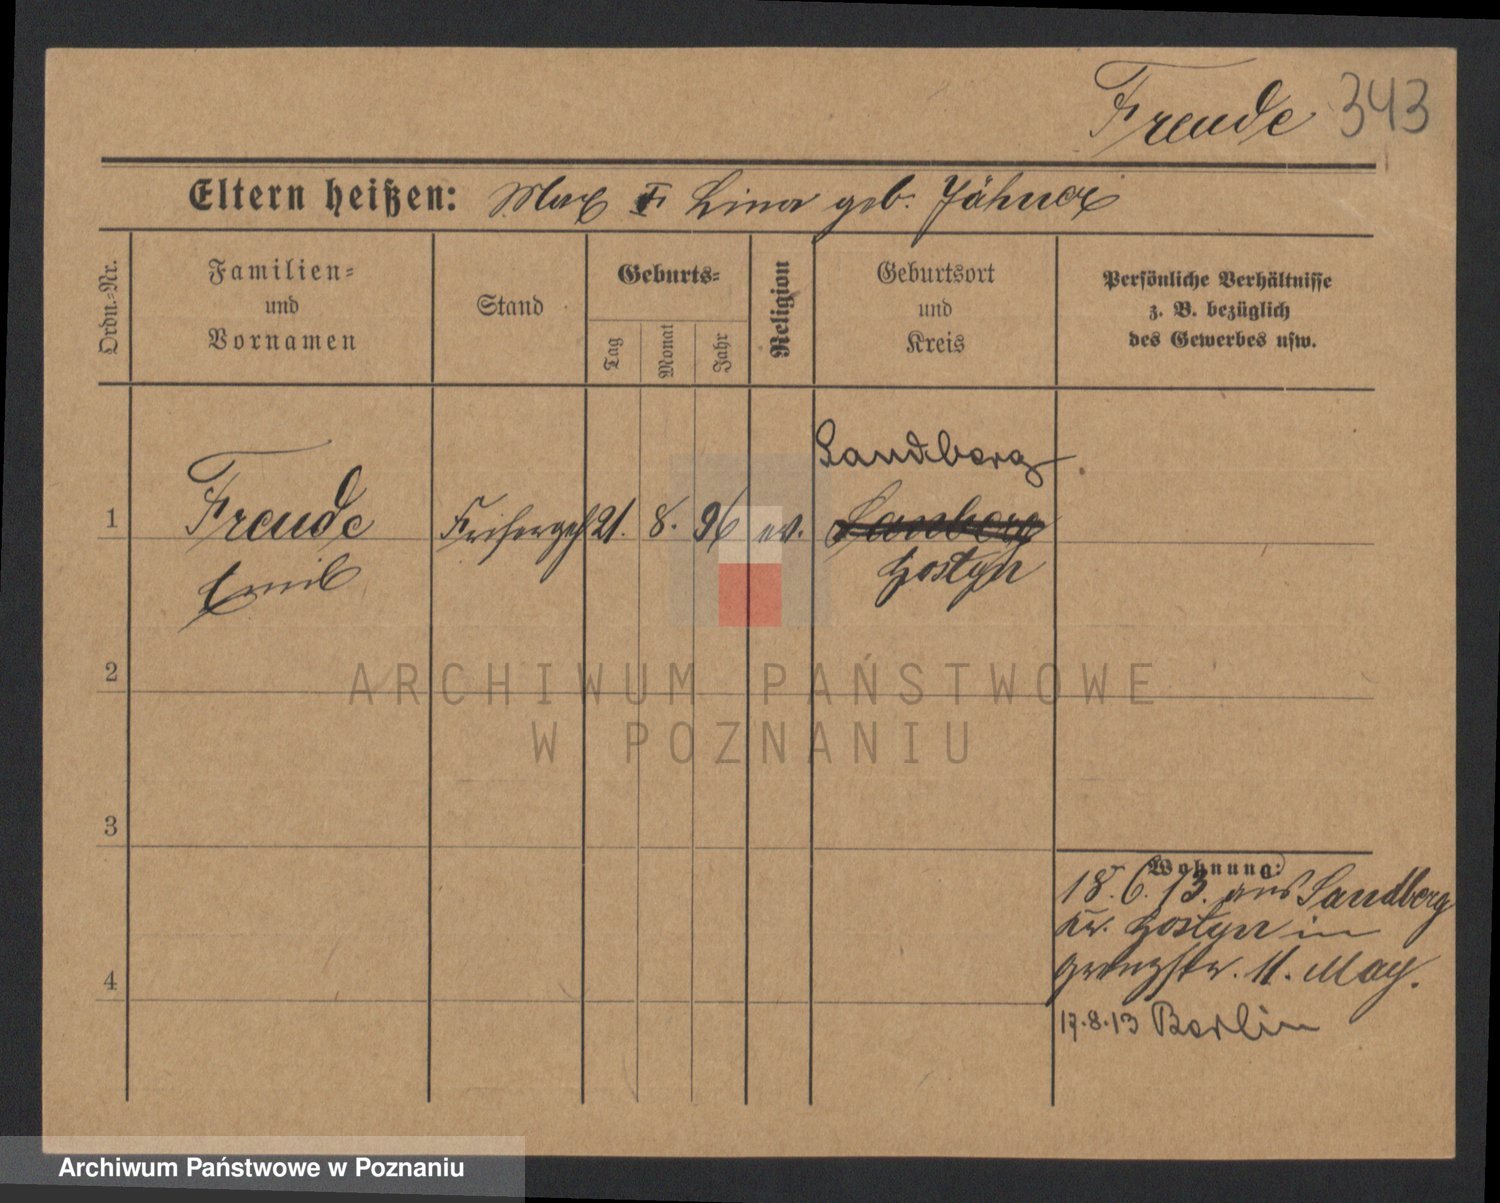 Freude 343
Eltern heißen: Max F Lina geb. Jähner
Ordn.-Nr.
Familien-
und
Vornamen
Stand
Geburts-
Tag
Monat
Jahr
Religion
Geburtsort
und
Kreis
Persönliche Verhältnisse
z. B. bezüglich
des Gewerbes usw.
Sandberg
1 Freude Frisergeh 21. 8. 96 ev. Sanberg
Emil
Gostyn
2
ARCHIWUM PAŃSTWOWE
W POZNANIU
3
Wohnung:
18.6.13. aus Sandberg
Kr. Gostyn in
4
11. May.
17.8.13 Berlin
Archiwum Państwowe w Poznaniu